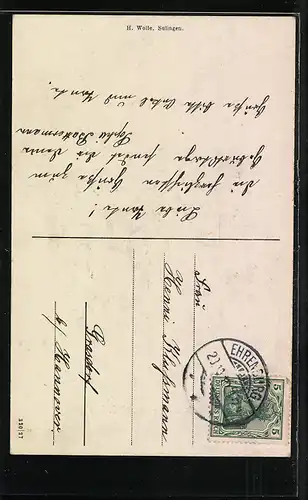 H. Wolle, Solingen.
Liebe Tante!
die herzlichsten Grüße zum
Geburtstage sendet die Deine
Sophie
Grüße bitte Onkel und Tante.
Frau
Henni
Grasdorf
b/ Hannover.
EHRENBURG
5 5
330/27